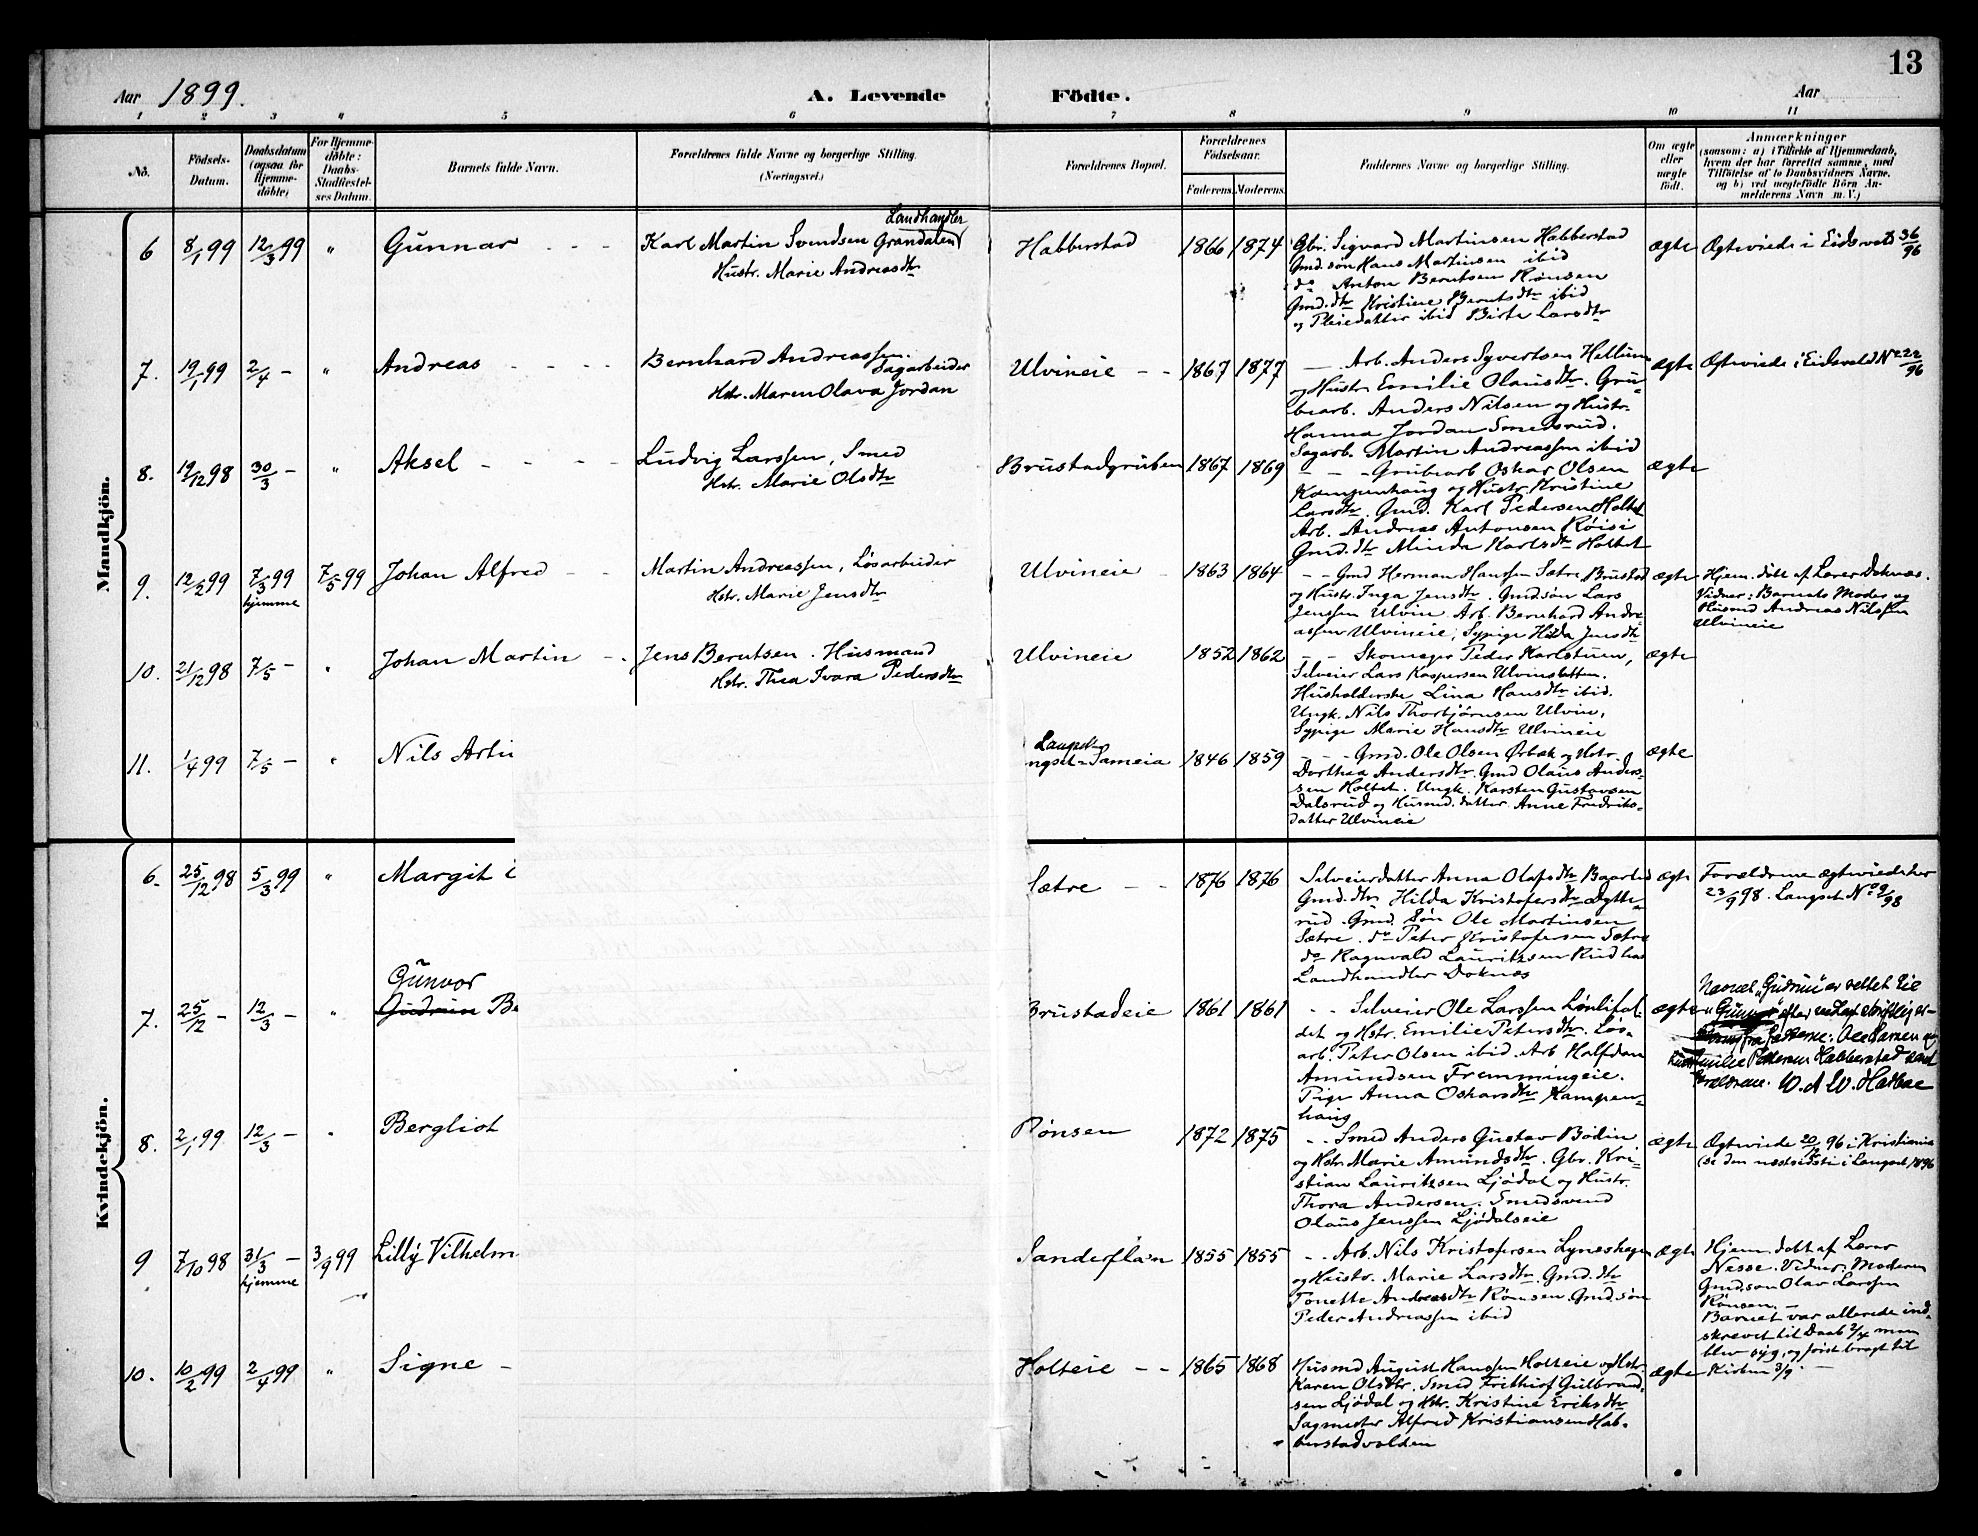 13
Aar 1899.
A. Levende Födte.
Aar
1 2 3 4 5 6 7 8 9 10 11
No.
Födsels-Datum.
Daabsdatum (ogsaa for Hjemme-döbte)
For Hjemme-döbte: Daabs-Stadfæstel-ses Datum.
Barnets fulde Navn.
Forældrenes fulde Navne og borgerlige Stilling.
(Næringsvei.)
Forældrenes Bopæl.
Forældrenes Födselsaar.
Faderens. Moderens.
Faddernes Navne og borgerlige Stilling.
Om ægte eller uægte födt.
Anmærkninger
(saasom: a) i Tilfælde af Hjemmedaab, hvem der har forrettet samme, med Tilföielse af to Daabsvidners Navne, og b) ved uægtefödte Börn An-melderens Navn m. V.)
Mandkjön.
6 8/1 99 12/3 99 " Gunnar - - -
Landhandler
Karl Martin Svendsen Grandalen
Hustr. Marie Andreasdtr
Habberstad 1866 1874
Gbr. Sigvard Martinsen Habberstad
Gmd. søn Hans Martinsen ibid
do Anton Berntsen Rønsen
Gmd. dtr Kristine Berntsdtr ibid
og Pleiedatter ibid Birte Larsdtr
ægte Ægteviede i Eidsvold 36/96
7. 19/1 99 2/4 - " Andreas - - - -
Bernhard Andreassen.
Sagarbeider
Hstr. Maren Olava Jordan
Ulvineie - - 1867 1877
- Arb. Anders Syvertsen Hellum
og Hustr Emilie Olausdtr. Gru-
bearb. Anders Nilsen og Hustr.
Hanna Jordan Smedsrud.
Sagarb. Martin Andreassen ibid
ægte Ægteviede i Eidsvold No 22/96
8. 19/12 98 30/3 - " Aksel - - - -
Ludvig Larssen, Smed
Hstr. Marie Olsdtr
Brustadgruben 1867 1869
- - - Grubearb Oskar Olsen
Kampenhaug og Hustr Kristine
Larsdtr. Gmd. Karl Pedersen Holtet
Arb. Andreas Antonsen Røisi
Gmd. dtr Minda Karlsdtr Holtet
ægte
9. 12/2 99 7/3 99 hjemme 7/5 99 Johan Alfred - -
Martin Andreassen, Løsarbeider
Hstr. Marie Jensdtr
Ulvineie - 1863 1864
- - Gmd Herman Hanssen Sætre Brustad
og Hustr. Inga Jensdtr. Gmd. søn Lars
Jenssen Ulvin Arb. Bernhard Andre-
assen Ulvineie, Sypige Hilda Jensdtr
ægte Hjem. døbt af Lærer Doknæs.
Vidner: Barnets Moder og
Husmd Andreas Nilssen
Ulvineie
10. 21/12 98 7/5 - " Johan Martin - .
Jens Berntsen. Husmand
Hstr. Thea Ivara Pedersdtr
Ulvineie 1852 1862
- - Skomager Peder Karlstuen,
Selveier Lars Kaspersen Ulvinsletten.
Husholderske Lina Hansdtr ibid.
Ungk. Nils Thorbjørnsen Ulvin,
Sypige Marie Hansdtr Ulvineie
ægte
11. 1/4 99 7/5 - " Nils Arti
Langset
ngset-Sameia 1846 1859
- - Gmd. Ole Olsen Ørbæk og Hstr.
Dorthea Andersdtr. Gmd Olaus Anders-
sen Holtet. Ungk. Karsten Gustavsen
Dalsrud og Husmd. datter Anne Fredriks-
datter Ulvineie
ægte
Kvindekjön.
6. 25/12 98 5/3 99 " Margit
Sætre - - 1876 1876
Selveierdatter Anna Olafsdtr
Gmd. dtr Hilda Kristofersdtr Dytte-
rud. Gmd. Søn Ole Martinsen
Sætre. do Peter Kristofersen Sætre
do Ragnvald Lauritzsen Rud hos
Landhandler Doknæs
ægte Forældrene ægteviede her
23/9 98. Langset No 9/98
7. 25/12 - 12/3 - "
Gunvor
Gudrun Be
Brustadeie 1861 1861
- - Selveier Ole Larssen
det og Hstr. Emilie Petersdtr. Løs-
arb. Peter Olsen ibid. Arb Halfdan
Amundsen Fremmingeie.
Pige Anna Oskarsdtr Kampen-
haug
ægte Navnet "Gudrun" er rettet til
"Gunvor" efter skriftlig er-
fra Fadderne: Ole Larsen og
Emilie Pettersen Habberstad samt
Forældrene. W. A. W.
8. 2/1 99 12/3 - " Bergliot
Rønsen 1872 1875
- - Smed Anders Gustav Bødin
og Hstr. Marie Amundsdtr. Gbr. Kri-
stian Lauritzsen Ljødal og Hustr.
Thora Andersen. Smedsvend
Olaus Jenssen Ljødalseie
ægte Ægteviede 20/12 96 i Kristiania
(se den næstsidste i Langset 1896
9 7/10 98 31/3 - hjemme 3/9 99 Lilly Vilhelm
Sanderflaen 1855 1855
- - Arb. Nils Kristofersen Lyneshagen
og Hustr. Marie Larsdtr. Gmd. dtr
Tonette Andreasdtr Rønsen. Gmd. søn
Peder Andreassen ibid
ægte Hjem. døbt af Lærer
Nesse. Vidner: Moderen
Gmd. søn Olav Larssen
Rønsen. -
Barnet var allerede ind-
skrevet til Daab 2/4 men
blev syg, og først bragt til
Kirken 3/9. -
10. 10/2 99 2/4 99 " Signe -
Holteie - - 1865 1868
Husmd August Hanssen Holteie og Hstr.
Karen Olsdtr. Smed Frithjof Gulbrand-
sen Ljødal og Hstr. Kristine Eriksdtr
Sagmester Alfred Kristiansen Hab-
berstadvolden
ægte